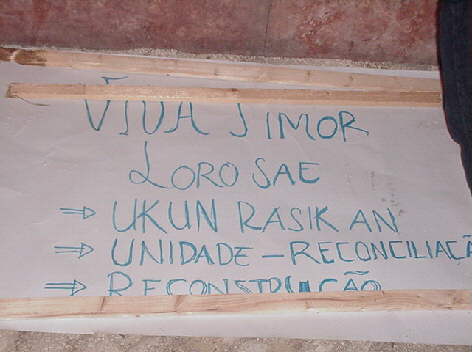 VIVA TIMOR
LORO SAE
⇒ UKUN RASIK AN
⇒ UNIDADE – RECONCILIAÇÃ
⇒ RECONSTRUÇÃO